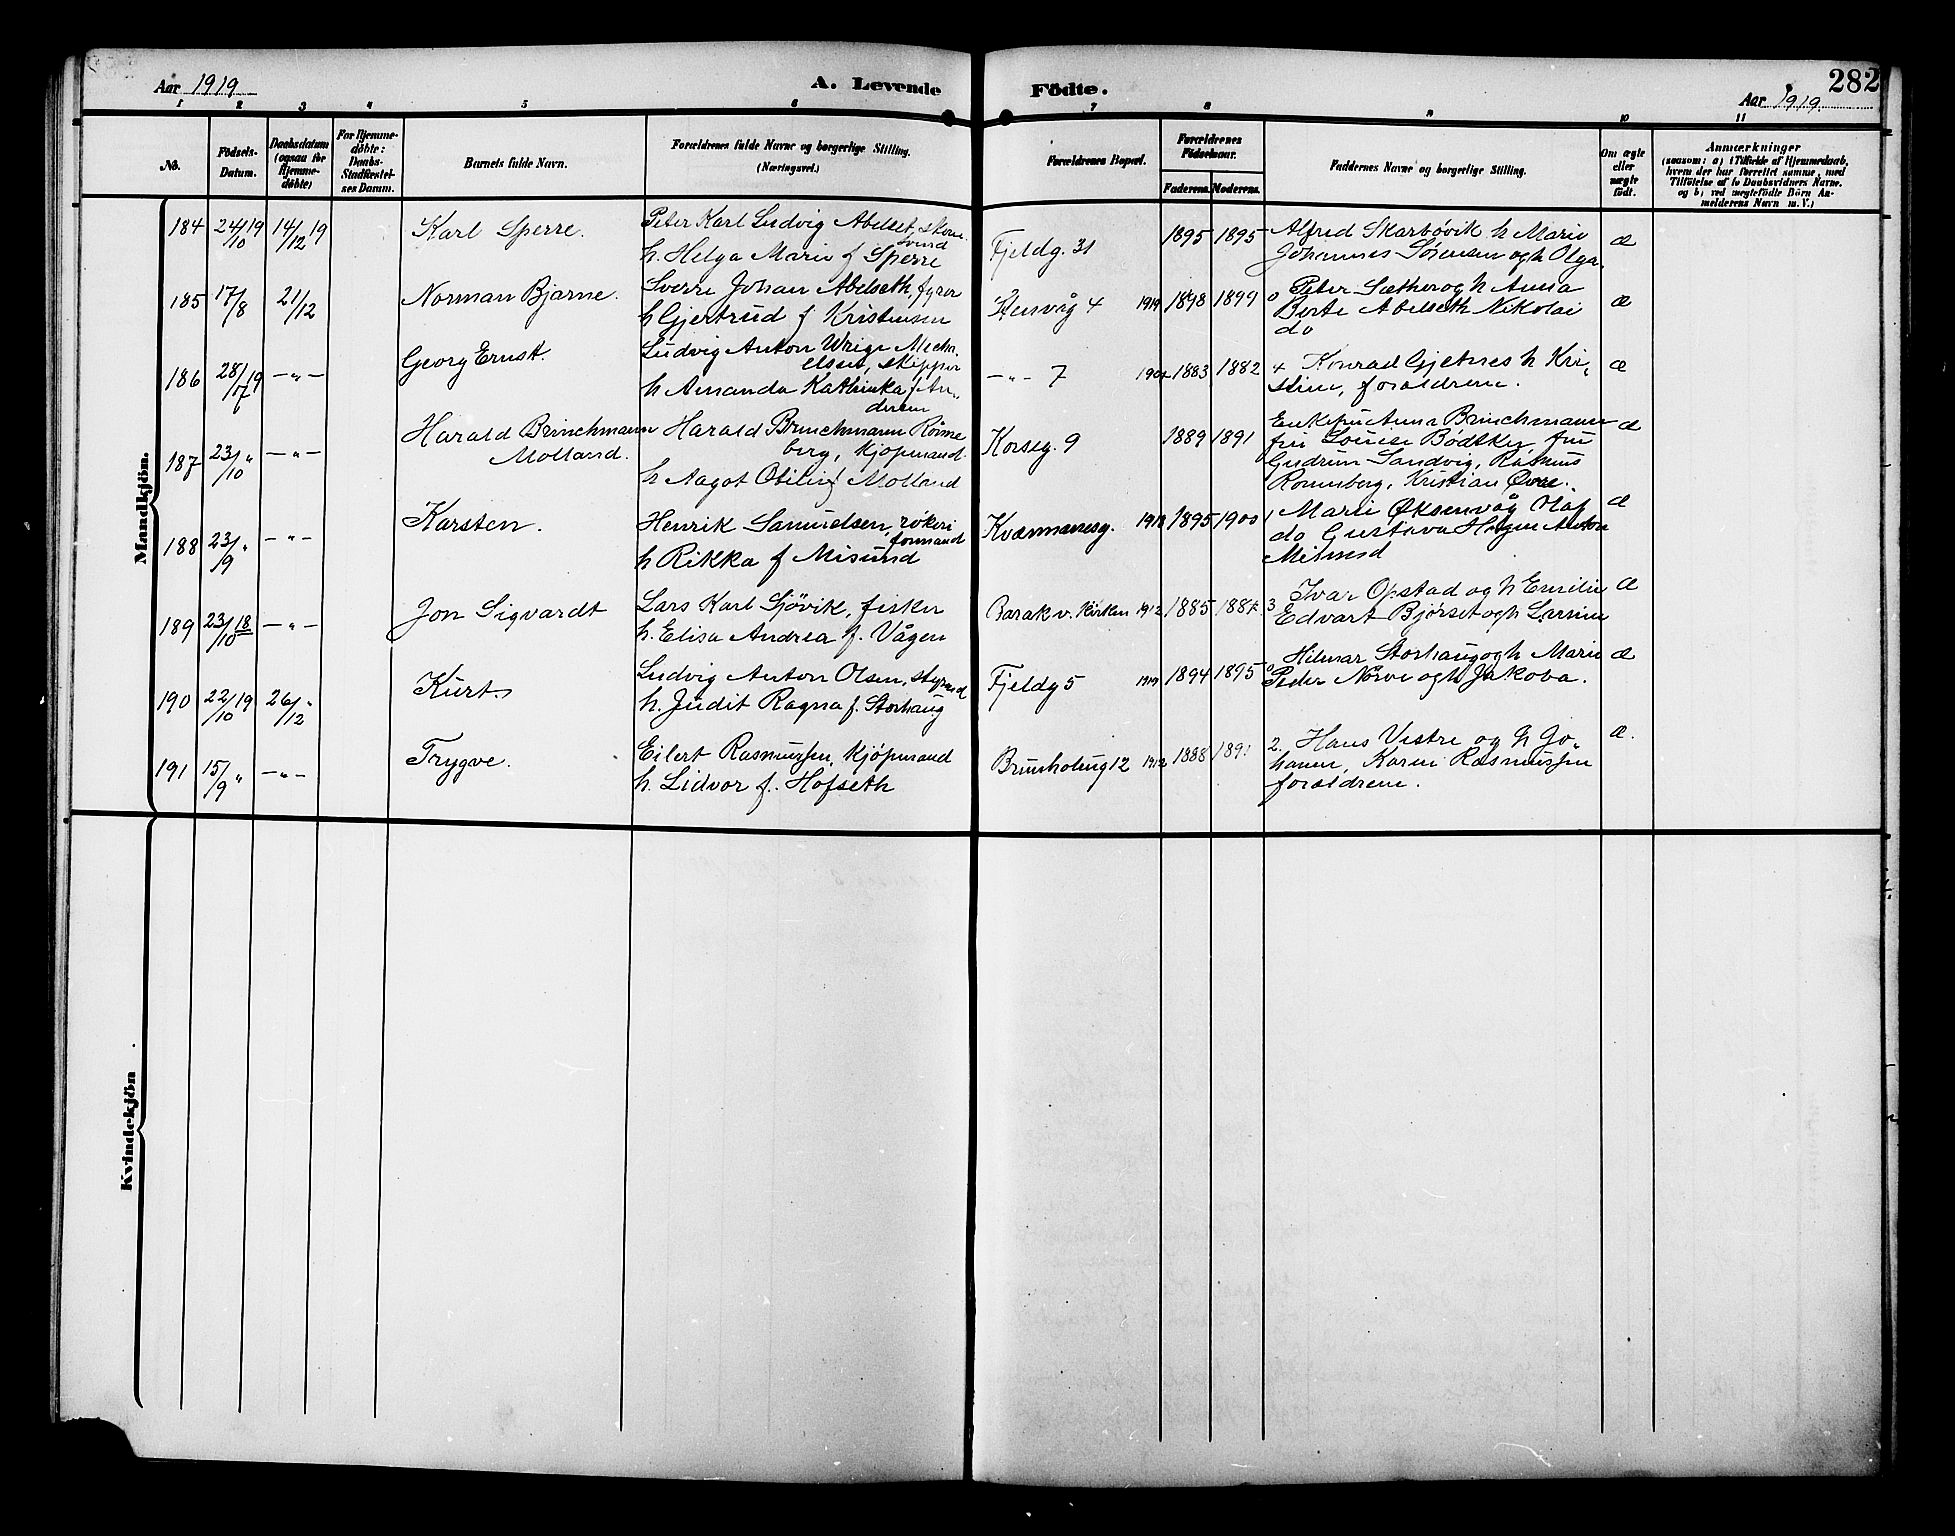 Aar 1919
A. Levende
Födte.
282
Aar 1919.
1 2 3 4 5 6 7 8 9 10 11
No.
Födsels-
Datum.
Daabsdatum
(ogsaa for
Hjemme-
døbte)
For Hjemme-
döbte:
Daabs-
Stadfæstel-
ses Datum.
Barnets fulde Navn.
Forældrenes fulde Navne og borgerlige Stilling.
(Næringsvei.)
Forældrenes Bopæl.
Forældrenes
Födselsaar.
Faderens. Moderens.
Faddernes Navne og borgerlige Stilling.
Om ægte
eller
uægte
födt.
Anmærkninger
(saasom: a) i Tilfælde af Hjemmedaab,
hvem der har forrettet samme, med
Tilföielse af to Daabsvidners Navne.
og b) ved uægtefödte Börn An-
melderens Navn m. V.)
Mandkjön.
184 24/10 19 14/12 19 Karl Sperre.
Peter Karl Ludvig Abelset,
h. Helga Marie f Sperre
Fjeldg. 31 1895 1895
Alfred Skarbövik h Marie
Johannes Sörensen og h Olga.
æ
185 17/8 21/12 Norman Bjarne.
Sverre Johan Abelseth, fyrer
h Gjertrud f Kristensen
Stensvåg 4 1919 1898 1899 0
Peter Sæther og h Anna
Berte Abelseth Nikolai
do
æ
186 28/7 19 -"- Georg Ernst.
Ludvig Anton Mecha
elsen, skipper
h Amanda Kathinka f An-
dersen
-"- 7 1883 1882 4
Konrad Gjetnes h Kri-
stine, forældrene.
æ
187 23/10 " -"- Harald Brinchmann
Molland.
Harald Brinchmann Rönne
berg, kjöpmand
h Aagot Otilie f Molland
Korseg. 9 1889 1891
Enkefru Anna Brinchmann
fru Louise Bödtker fru
Gudrun Sandvig, Rasmus
Ronneberg, Kristian
æ
188 23/9 " -"- Karsten.
Henrik Samuelsen, rökeri
formand
h Rikka f Misund
Kvænnanesg. 1895 1900 1
Marie Oksenvåg Olaf
do Gustava Hagen Anton
Misund
æ
189 23/10 18 -"- Jon Sigvardt
Lars Karl Sjövik, fisker
h. Elisa Andrea f. Vågen
Barak v. kirken 1912 1885 1887 3
Ivar Opstad og h Emilie
Edvart Bjørset og h
æ
190 22/10 19 26/12 " Kurt
Ludvig Anton Olsen, styrmd
h. Judit Ragna f. Storhaug
Fjeldg 5 1919 1894 1895 0
Hilmar Storhaug og h Marie
Peder Nörve og h Jakoba.
æ
191 15/9 " -"- Trygve.
Eilert Rasmussen, Kjöpmand
h. Lidvor f. Hofseth
Brunholmg 12 1912 1888 1891 2.
Hans Vestre og h Jo-
hanne, Karen Rasmussen
forældrene.
æ.
Kvindekjön